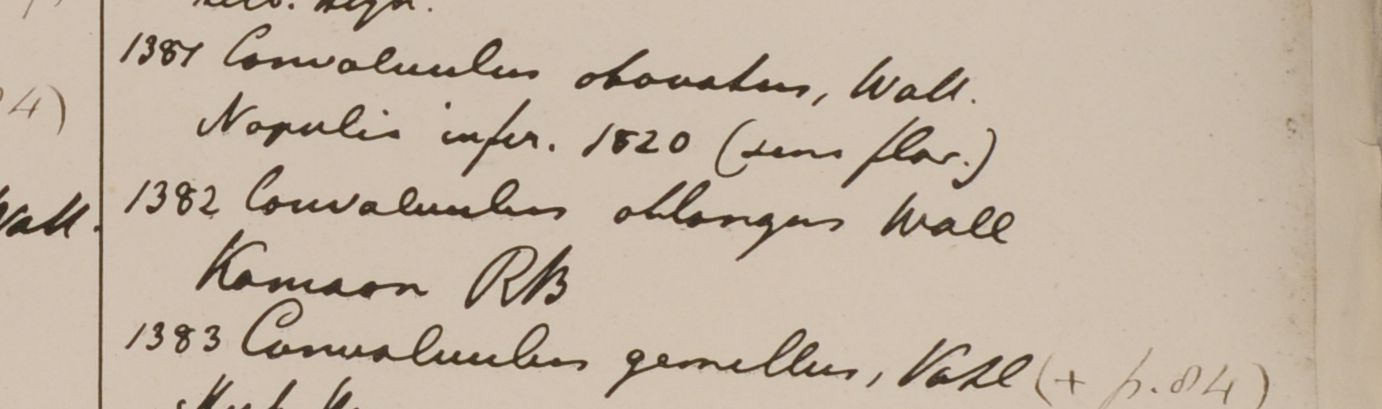 4)
Wall.
1381 Convolvulus obovatus, Wall.
Napalia infer. 1820 (sine flor.)
1382 Convolvulus oblongus Wall
Kamaon RB
1383 Convolvulus gemellus, Vahl (+ p. 84)